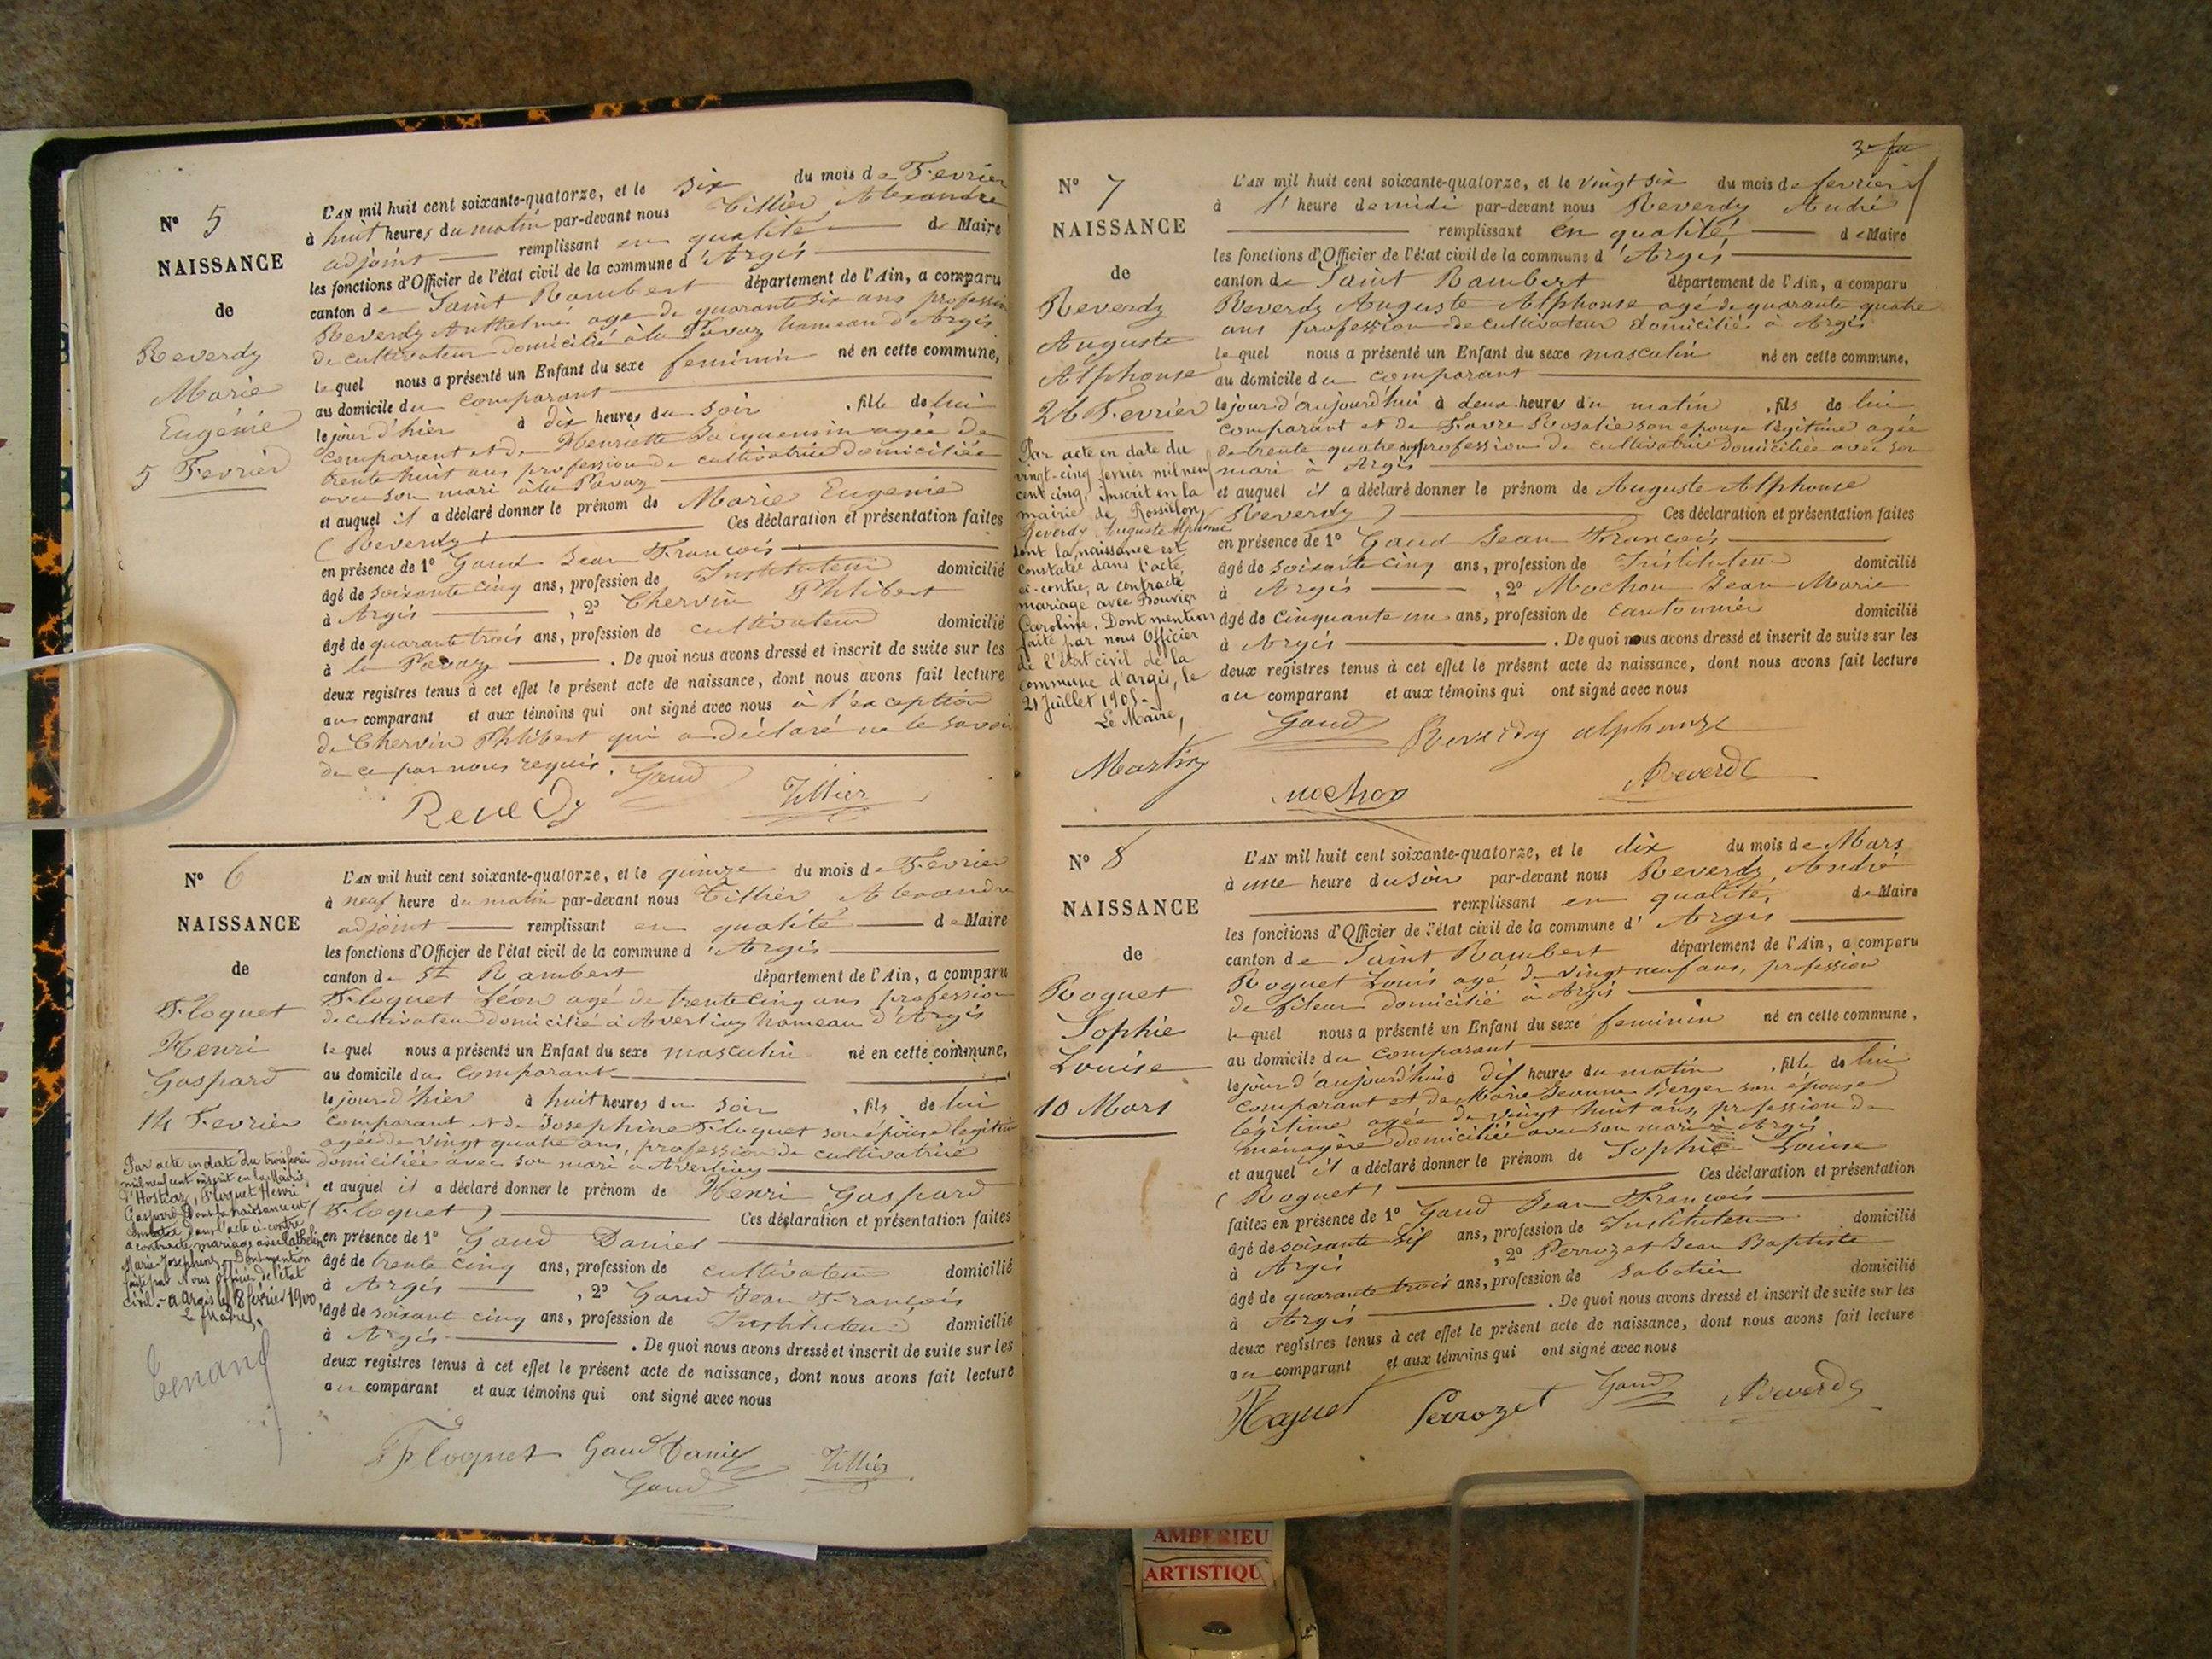 N° 5
NAISSANCE
de
Reverdy
Marie
Eugénie
5 Fevrier
L'AN mil huit cent soixante-quatorze, et le six du mois de Fevrier
à huit heures du matin par-devant nous Tillier Alexandre
adjoint remplissant en qualité de Maire
les fonctions d'Officier de l'état civil de la commune d'Argis
canton de Saint Rambert département de l'Ain, a comparu
Reverdy Anthelme age de quarante six ans profession
de cultivateur domicilié à la Pavaz hameau d'Argis
lequel nous a présenté un Enfant du sexe feminin né en cette commune,
au domicile du comparant
le jour d'hier à dix heures du soir, fille de lui
comparant et de Henriette Jacquemin agée de
trente huit ans profession de cultivatrice domiciliée
avec son mari à la Pavaz
et auquel il a déclaré donner le prénom de Marie Eugenie
(Reverdy) Ces déclaration et présentation faites
en présence de 1° Gaud Jean François
âgé de soixante cinq ans, profession de Instituteur domicilié
à Argis, 2° Chervin Philibert
âgé de quarante trois ans, profession de cultivateur domicilié
à la Pavaz. De quoi nous avons dressé et inscrit de suite sur les
deux registres tenus à cet effet le présent acte de naissance, dont nous avons fait lecture
au comparant et aux témoins qui ont signé avec nous à l'exception
de Chervin Philibert qui a déclaré ne le savoir
de ce par nous requis.
Reverdy Gaud Tillier
N° 6
NAISSANCE
de
Floquet
Henri
Gaspard
14 Fevrier
Par acte en date du trois février
mil neuf cent inscrit en la Mairie
d'Hostiaz, Floquet Henri
Gaspard Dont la naissance est
constatée dans l'acte ci-contre
a contracté mariage avec
Marie Josephine. Dont mention
faite par Nous Officier de l'état
civil. - a Argis le 8 février 1900
Le Maire,
L'AN mil huit cent soixante-quatorze, et le quinze du mois de Fevrier
à neuf heure du matin par-devant nous Tillier Alexandre
adjoint remplissant en qualité de Maire
les fonctions d'Officier de l'état civil de la commune d'Argis
canton de St Rambert département de l'Ain, a comparu
Floquet Léon agé de trente cinq ans profession
de cultivateur domicilié à Averliaz hameau d'Argis
lequel nous a présenté un Enfant du sexe masculin né en cette commune,
au domicile du comparant
le jour d'hier à huit heures du soir, fils de lui
comparant et de Josephine Floquet son épouse légitime
agée de vingt quatre ans, profession de cultivatrice
domiciliée avec son mari à Averliaz
et auquel il a déclaré donner le prénom de Henri Gaspard
(Floquet) Ces déclaration et présentation faites
en présence de 1° Gaud Daniel
âgé de trente cinq ans, profession de cultivateur domicilié
à Argis, 2° Gaud Jean François
âgé de soixante cinq ans, profession de Instituteur domicilié
à Argis. De quoi nous avons dressé et inscrit de suite sur les
deux registres tenus à cet effet le présent acte de naissance, dont nous avons fait lecture
au comparant et aux témoins qui ont signé avec nous
Floquet Gaud Daniel Tillier
Gaud
N° 7
NAISSANCE
de
Reverdy
Auguste
Alphonse
26 Fevrier
Par acte en date du
vingt-cinq fevrier mil neuf
cent cinq, inscrit en la
mairie de Rossillon
Reverdy Auguste Alphonse
dont la naissance est
constatée dans l'acte
ci-contre, a contracté
mariage avec Bouvier
Caroline. Dont mention
faite par nous Officier
de l'état civil de la
commune d'argis, le
21 Juillet 1905.
Le Maire,
Martin
L'AN mil huit cent soixante-quatorze, et le vingt six du mois de fevrier
à 1' heure de midi par-devant nous Reverdy André
remplissant en qualité de Maire
les fonctions d'Officier de l'état civil de la commune d'Argis
canton de Saint Rambert département de l'Ain, a comparu
Reverdy Auguste Alphonse agé de quarante quatre
ans profession de cultivateur domicilié à Argis
lequel nous a présenté un Enfant du sexe masculin né en cette commune,
au domicile du comparant
le jour d'aujourd'hui à deux heures du matin, fils de lui
comparant et de Favre Rosalie son epouse légitime agée
de trente quatre ans profession de cultivatrice domiciliée avec son
mari à Argis
et auquel il a déclaré donner le prénom de Auguste Alphonse
(Reverdy) Ces déclaration et présentation faites
en présence de 1° Gaud Jean François
âgé de soixante cinq ans, profession de Instituteur domicilié
à Argis, 2° Mochon Jean Marie
âgé de cinquante un ans, profession de cantonnier domicilié
à Argis. De quoi nous avons dressé et inscrit de suite sur les
deux registres tenus à cet effet le présent acte de naissance, dont nous avons fait lecture
au comparant et aux témoins qui ont signé avec nous
Gaud Reverdy alphonse
mochon AReverdy
N° 8
NAISSANCE
de
Roguet
Sophie
Louise
10 Mars
L'AN mil huit cent soixante-quatorze, et le dix du mois de Mars
à une heure du soir par-devant nous Reverdy, André
remplissant en qualité, de Maire
les fonctions d'Officier de l'état civil de la commune d'Argis
canton de Saint Rambert département de l'Ain, a comparu
Roguet Louis agé de vingt neuf ans, profession
de fileur domicilié à Argis
lequel nous a présenté un Enfant du sexe feminin né en cette commune,
au domicile du comparant
le jour d'aujourd'hui à dix heures du matin, fille de lui
comparant et de Marie Jeanne Berger son épouse
légitime agée de vingt huit ans, profession de
ménagère domiciliée avec son mari à Argis
et auquel il a déclaré donner le prénom de Sophie Louise
(Roguet) Ces déclaration et présentation
faites en présence de 1° Gaud Jean François
âgé de soixante six ans, profession de Instituteur domicilié
à Argis, 2° Perrozet Jean Baptiste
âgé de quarante trois ans, profession de sabotier domicilié
à Argis. De quoi nous avons dressé et inscrit de suite sur les
deux registres tenus à cet effet le présent acte de naissance, dont nous avons fait lecture
au comparant et aux témoins qui ont signé avec nous
Roguet Perrozet Gaud AReverdy
AMBERIEU
ARTISTIQU